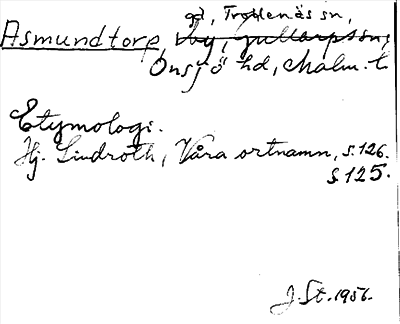 gd, Trollenäs sn,
Asmundtorp, by, Gullarps sn,
Onsjö hd, Malm. l.
Etymologi.
Hj. Lindroth, Våra ortnamn, s. 126.
s 125.
J. St. 1956.